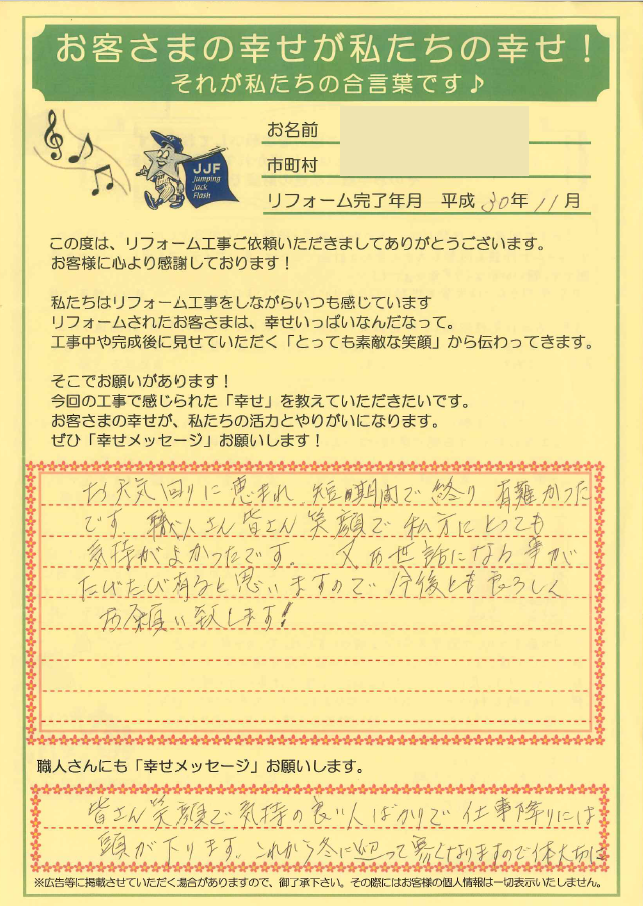 お客さまの幸せが私たちの幸せ！
それが私たちの合言葉です♪
お名前
JJF
Jumping
Jack
Flash
市町村
リフォーム完了年月 平成30年11月
この度は、リフォーム工事ご依頼いただきましてありがとうございます。
お客様に心より感謝しております！
私たちはリフォーム工事をしながらいつも感じています
リフォームされたお客さまは、幸せいっぱいなんだなって。
工事中や完成後に見せていただく「とっても素敵な笑顔」から伝わってきます。
そこでお願いがあります！
今回の工事で感じられた「幸せ」を教えていただきたいです。
お客さまの幸せが、私たちの活力とやりがいになります。
ぜひ「幸せメッセージ」お願いします！
お天気回りに恵まれ 短期間で終り 有難かった
です。職人さん皆さん笑顔で私方にとっても
気持がよかったです。 又お世話になる事が
たびたび有ると思いますので 今後とも良ろしく
お願い致します！
職人さんにも「幸せメッセージ」お願いします。
皆さん笑顔で気持の良い人ばかりで 仕事降りには
頭が下ります。これから冬に迫って寒くなりますので体大切に
※広告等に掲載させていただく場合がありますので、御了承下さい。その際にはお客様の個人情報は一切表示いたしません。